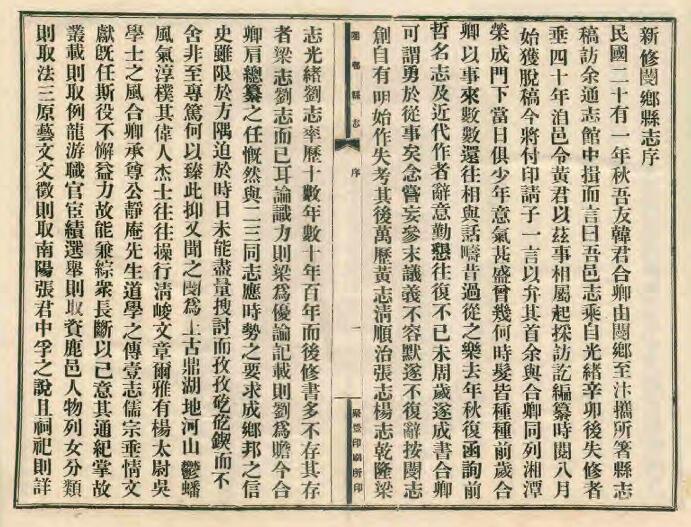 新修閿鄉縣志序
民國二十有一年秋吾友韓君合卿由閿鄉至汴攜所著縣志
稿訪余通志館中揖而言曰吾邑志乘自光緒辛卯後失修者
垂四十年洎邑令黃君以茲事相屬起採訪訖編纂時閱八月
始獲脫稿今將付印請子一言以弁其首余與合卿同列湘潭
榮成門下當日俱少年意氣甚盛曾幾何時髮皆種種前歲合
卿以事來數數還往相與話疇昔過從之樂去年秋復函詢前
哲名志及近代作者辭意勤懇往復不已未周歲遂成書合卿
可謂勇於從事矣念嘗妄參末議義不容默遂不復辭按閿志
創自有明始作失考其後萬歷黃志清順治張志楊志乾隆梁
閿鄉縣志
序
一
聚豐印刷所印
志光緒劉志率歷十數年數十年百年而後修書多不存其存
者梁志劉志而已耳論識力則梁為優論記載則劉為贍今合
卿肩總纂之任慨然與二三同志應時勢之要求成鄉邦之信
史雖限於方隅迫於時日未能盡量搜討而孜孜矻矻鍥而不
舍非至專篤何以臻此抑又聞之閿為上古鼎湖地河山鬱蟠
風氣淳樸其偉人杰士往往操行清峻文章爾雅有楊太尉吳
學士之風合卿承尊公靜庵先生道學之傳壹志儒宗垂情文
獻既任斯役不懈益力故能兼綜眾長斷以己意其通紀掌故
叢載則取例龍游職官宦績選舉則取資鹿邑人物列女分類
則取法三原藝文文徵則取南陽張君中孚之說且祠祀則詳